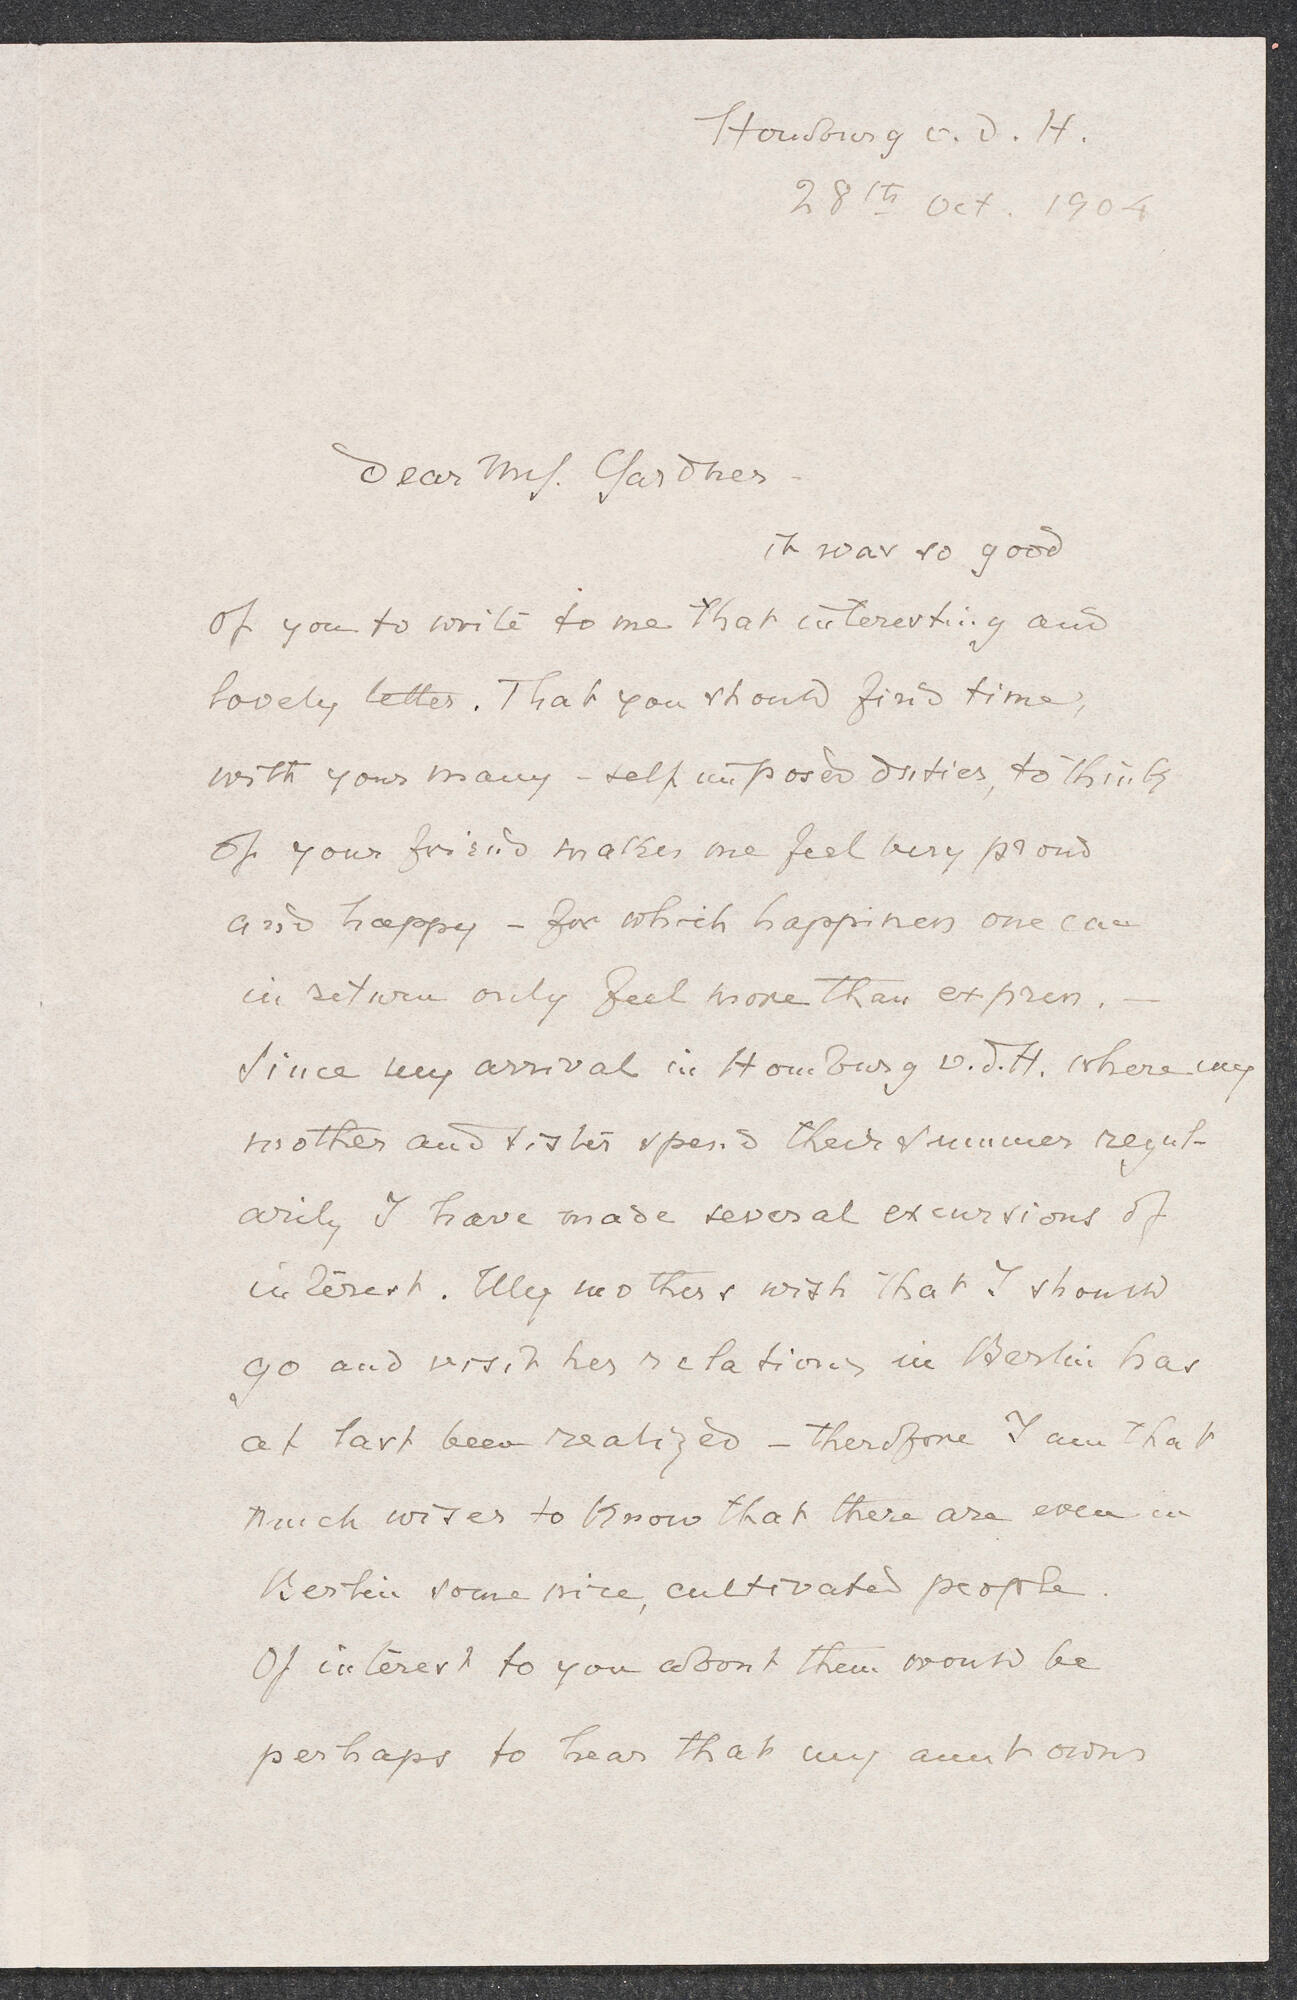 Homburg v. d. H.
28th Oct. 1904
Dear Mrs. Gardner -
it was so good
of you to write to me that interesting and
lovely letter. That you should find time,
with your many - self imposed duties, to think
of your friend makes me feel very proud
and happy - for which happiness one can
in return only feel more than express. —
Since my arrival in Homburg v.d.H. where my
mother and sister spend their summer regul-
arily I have made several excursions of
interest. My mothers wish that I should
go and visit her relations in Berlin has
at last been realized - therefore I am that
much wiser to know that there are even in
Berlin some nice, cultivated people.
Of interest to you about them would be
perhaps to hear that my aunt owns